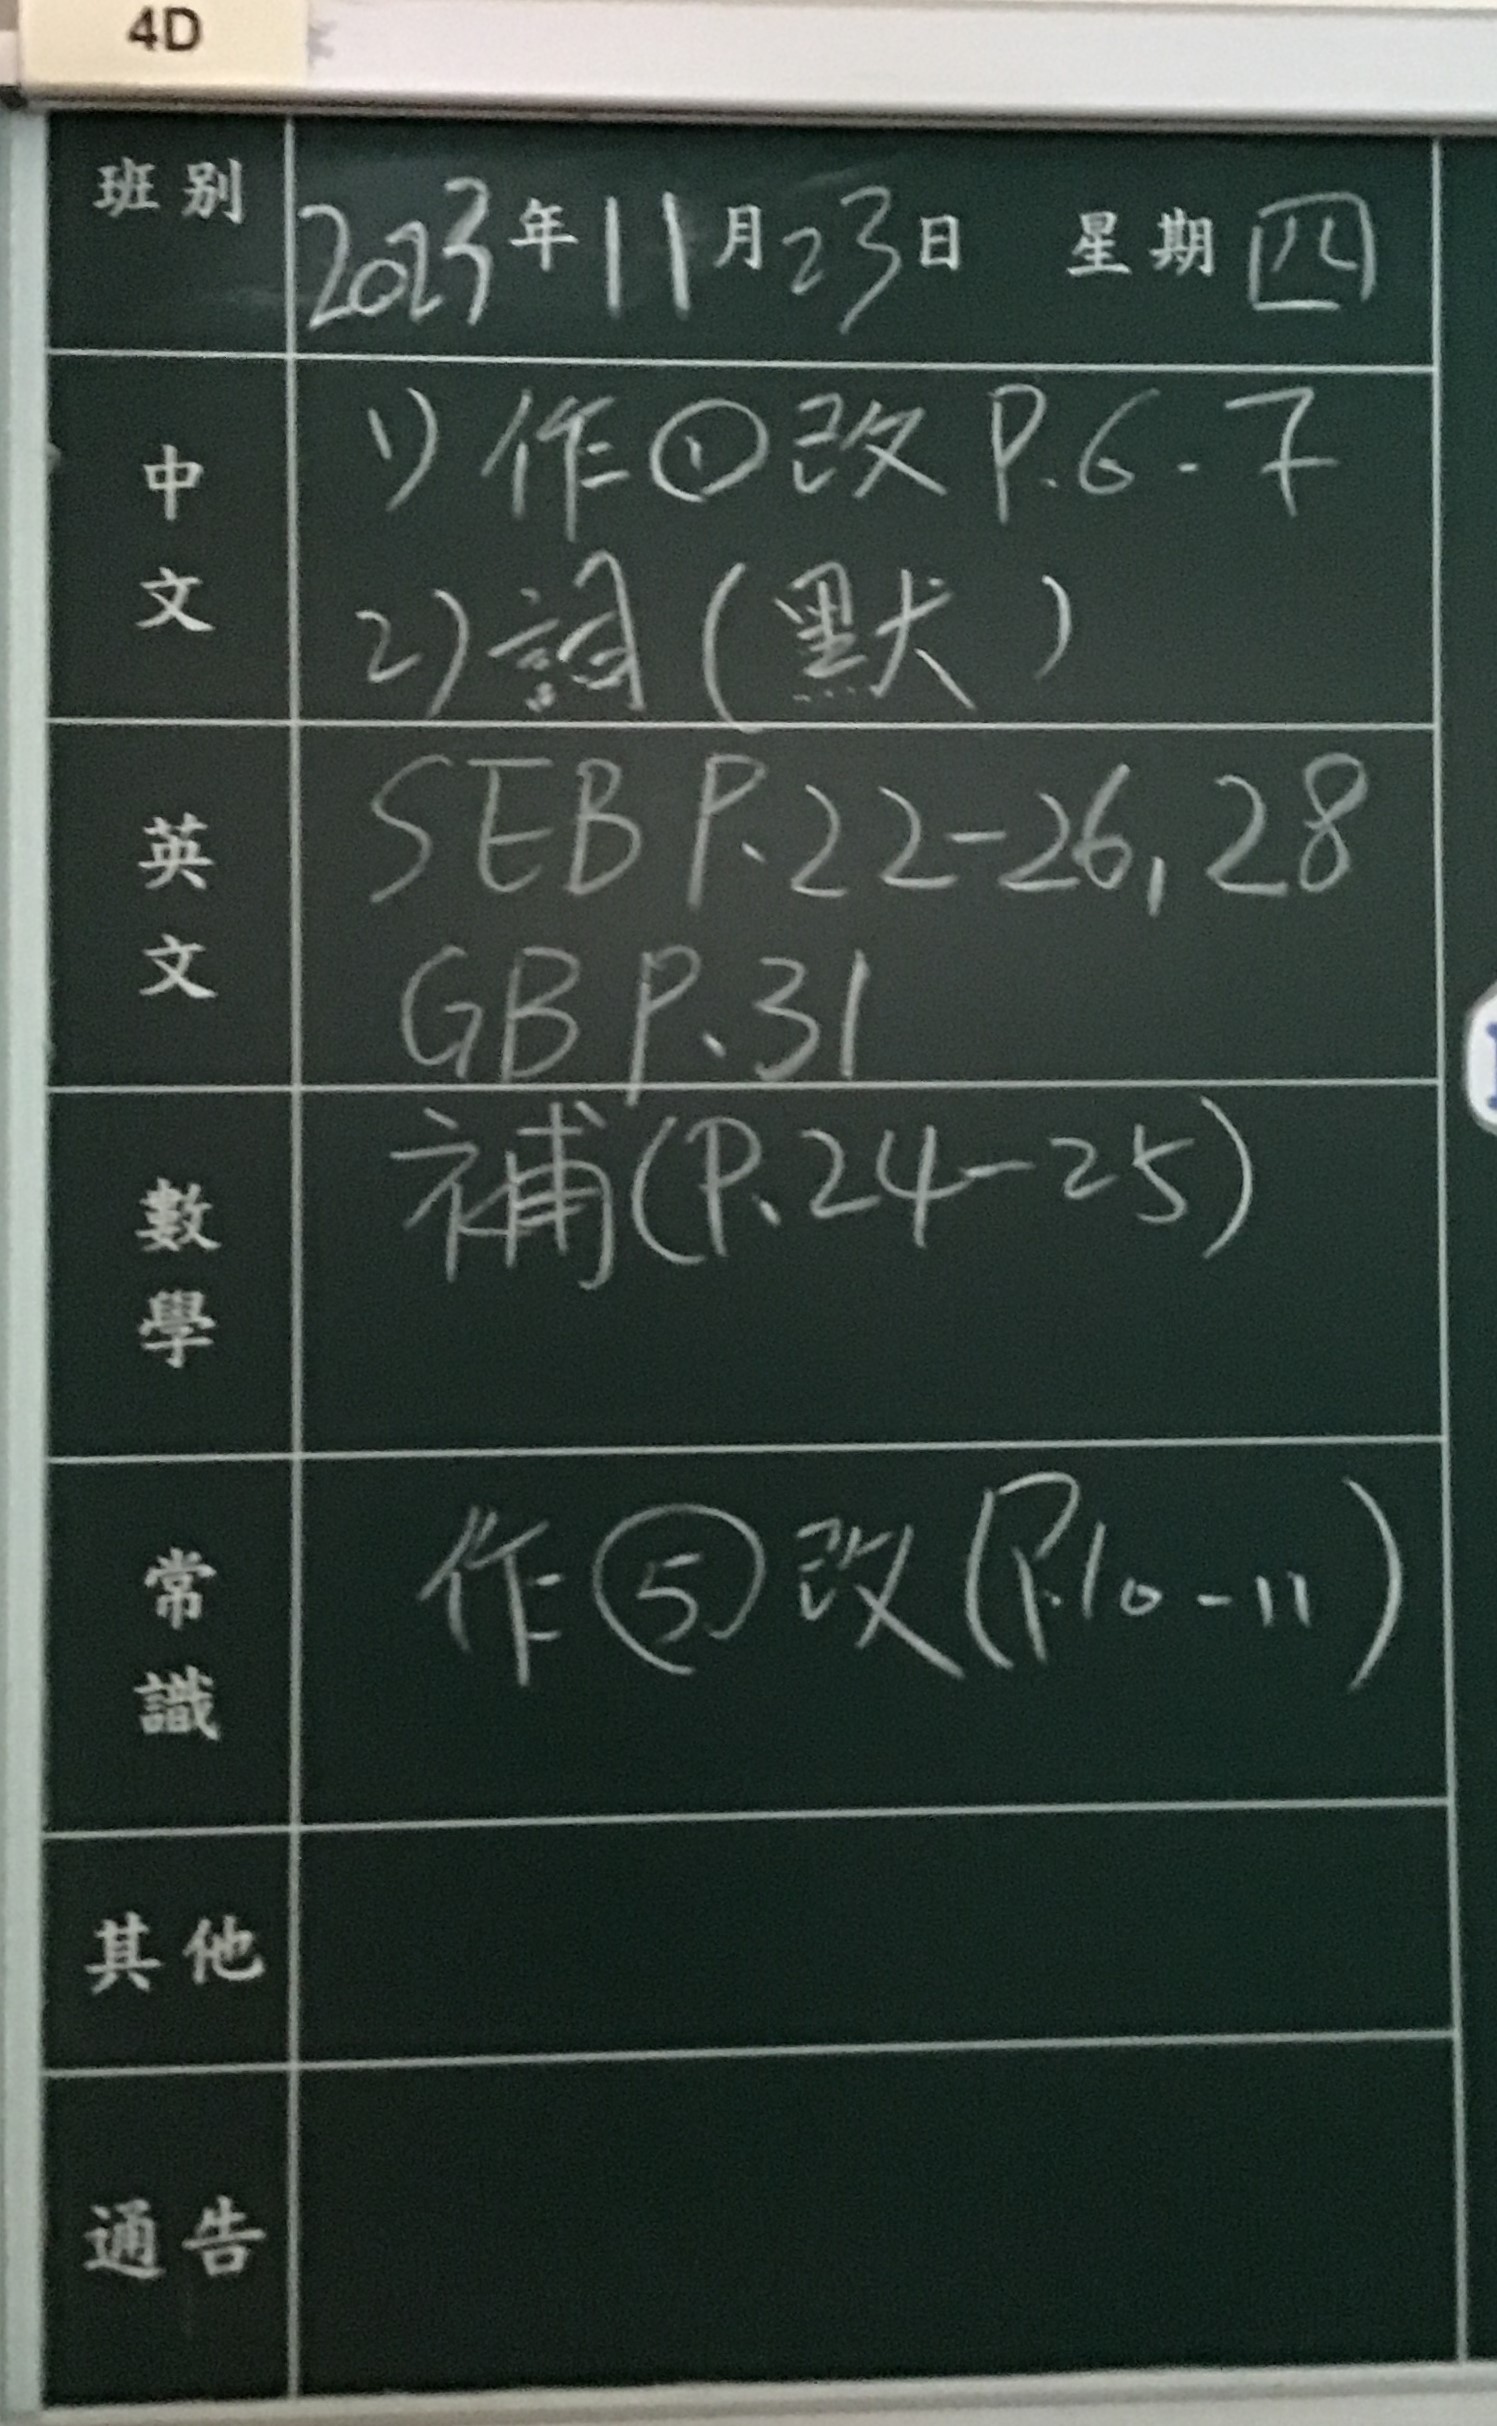 4D
班别 2023年11月23日 星期四
中文 1) 作①改 P.6-7
2) 詞(默)
英文 SEB P.22-26, 28
GB P.31
數學 補(P.24-25)
常識 作⑤改(P.10-11)
其他
通告